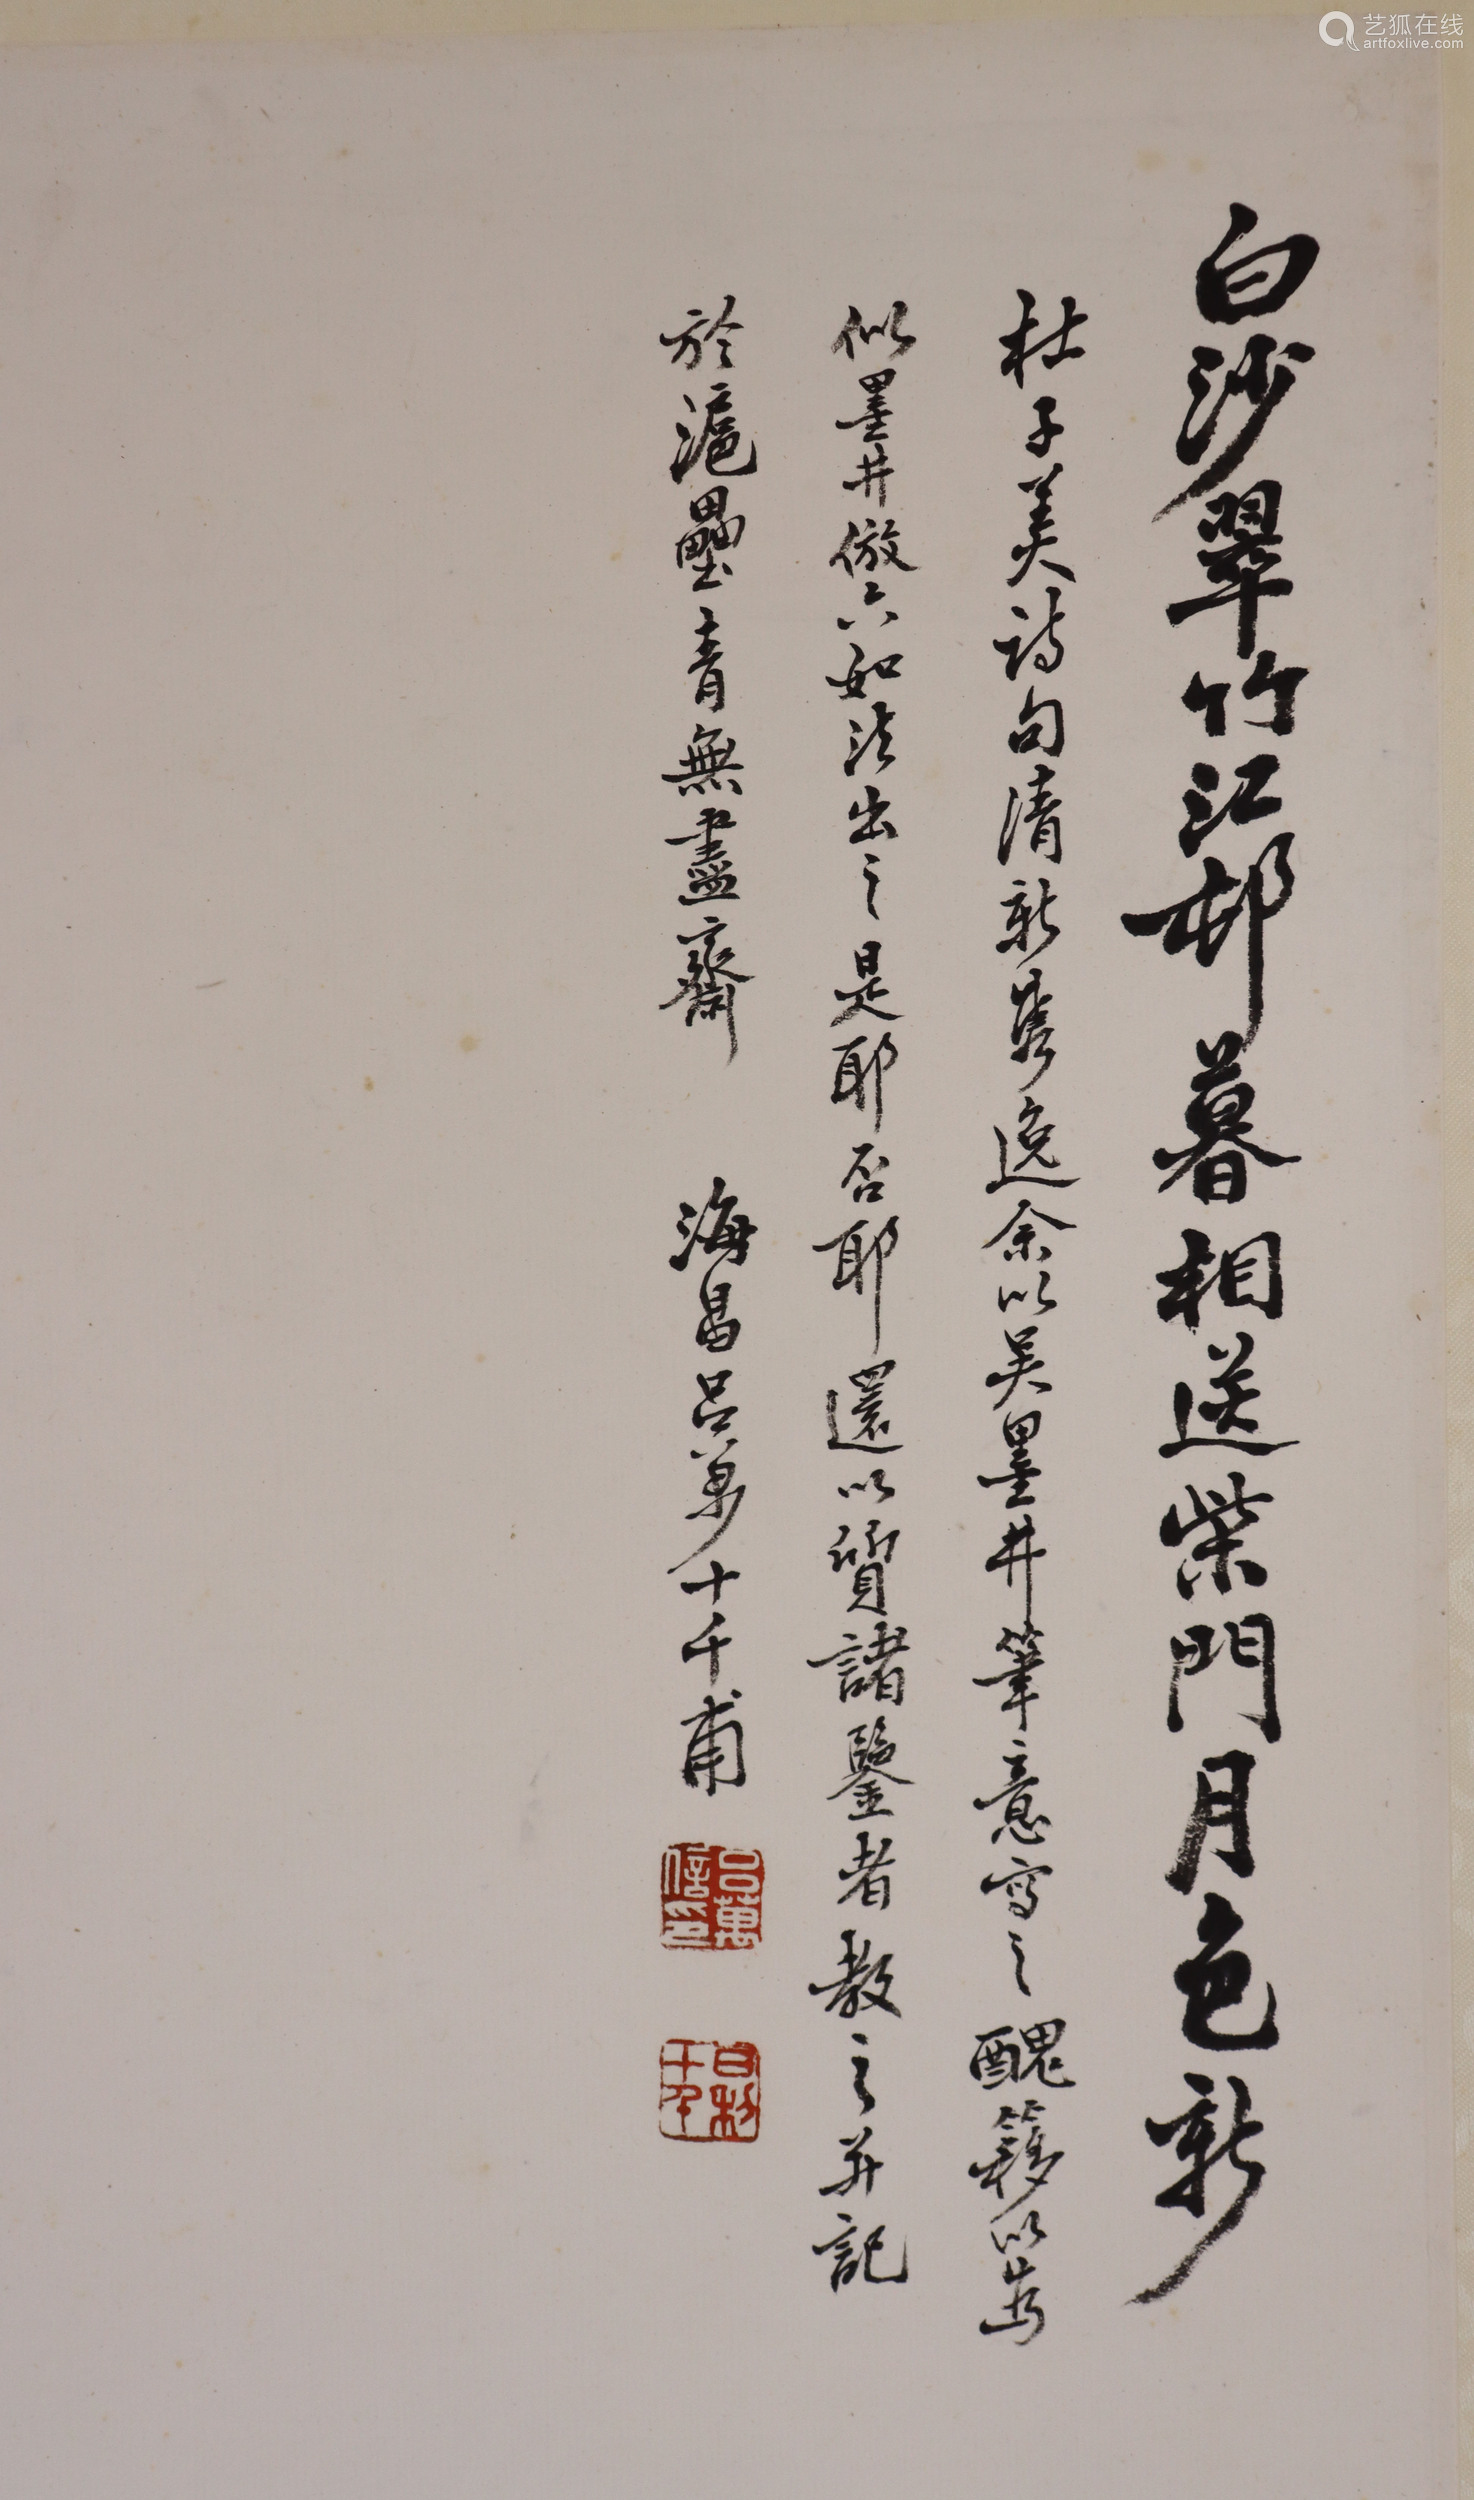 白沙翠竹江邨暮相送柴門月色新
杜子美詩句清新雋逸余以吳墨井筆意寫之醜簃以為
似墨井倣六如法出之是耶否耶還以質諸鑒者教之并記
於滬壘青無盡齋 海昌呂萬十千甫
呂萬信印
艺狐在线
artfoxlive.com